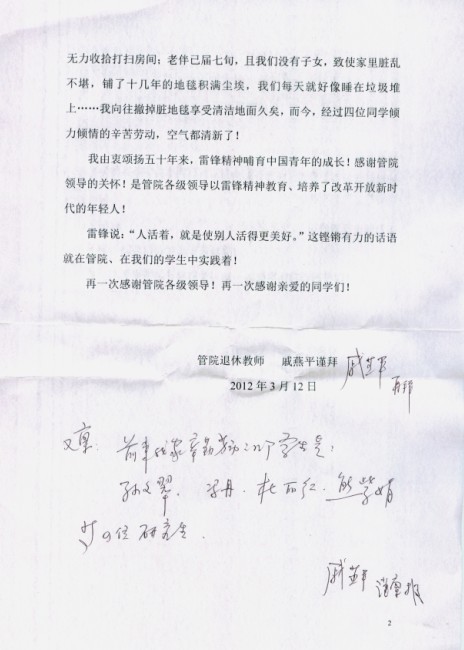 无力收拾打扫房间；老伴已届七旬，且我们没有子女，致使家里脏乱
不堪，铺了十几年的地毯积满尘埃，我们每天就好像睡在垃圾堆
上……我向往撤掉脏地毯享受清洁地面久矣，而今，经过四位同学倾
力倾情的辛苦劳动，空气都清新了！
我由衷颂扬五十年来，雷锋精神哺育中国青年的成长！感谢管院
领导的关怀！是管院各级领导以雷锋精神教育、培养了改革开放新时
代的年轻人！
雷锋说：“人活着，就是使别人活得更美好。”这铿锵有力的话语
就在管院、在我们的学生中实践着！
再一次感谢管院各级领导！再一次感谢亲爱的同学们！
管院退休教师 戚燕平谨拜 戚燕平
再拜
2012 年 3 月 12 日
又禀： 前来我家辛勤劳动
孙文翠、 丹、杜
位研究生。
戚燕平
2